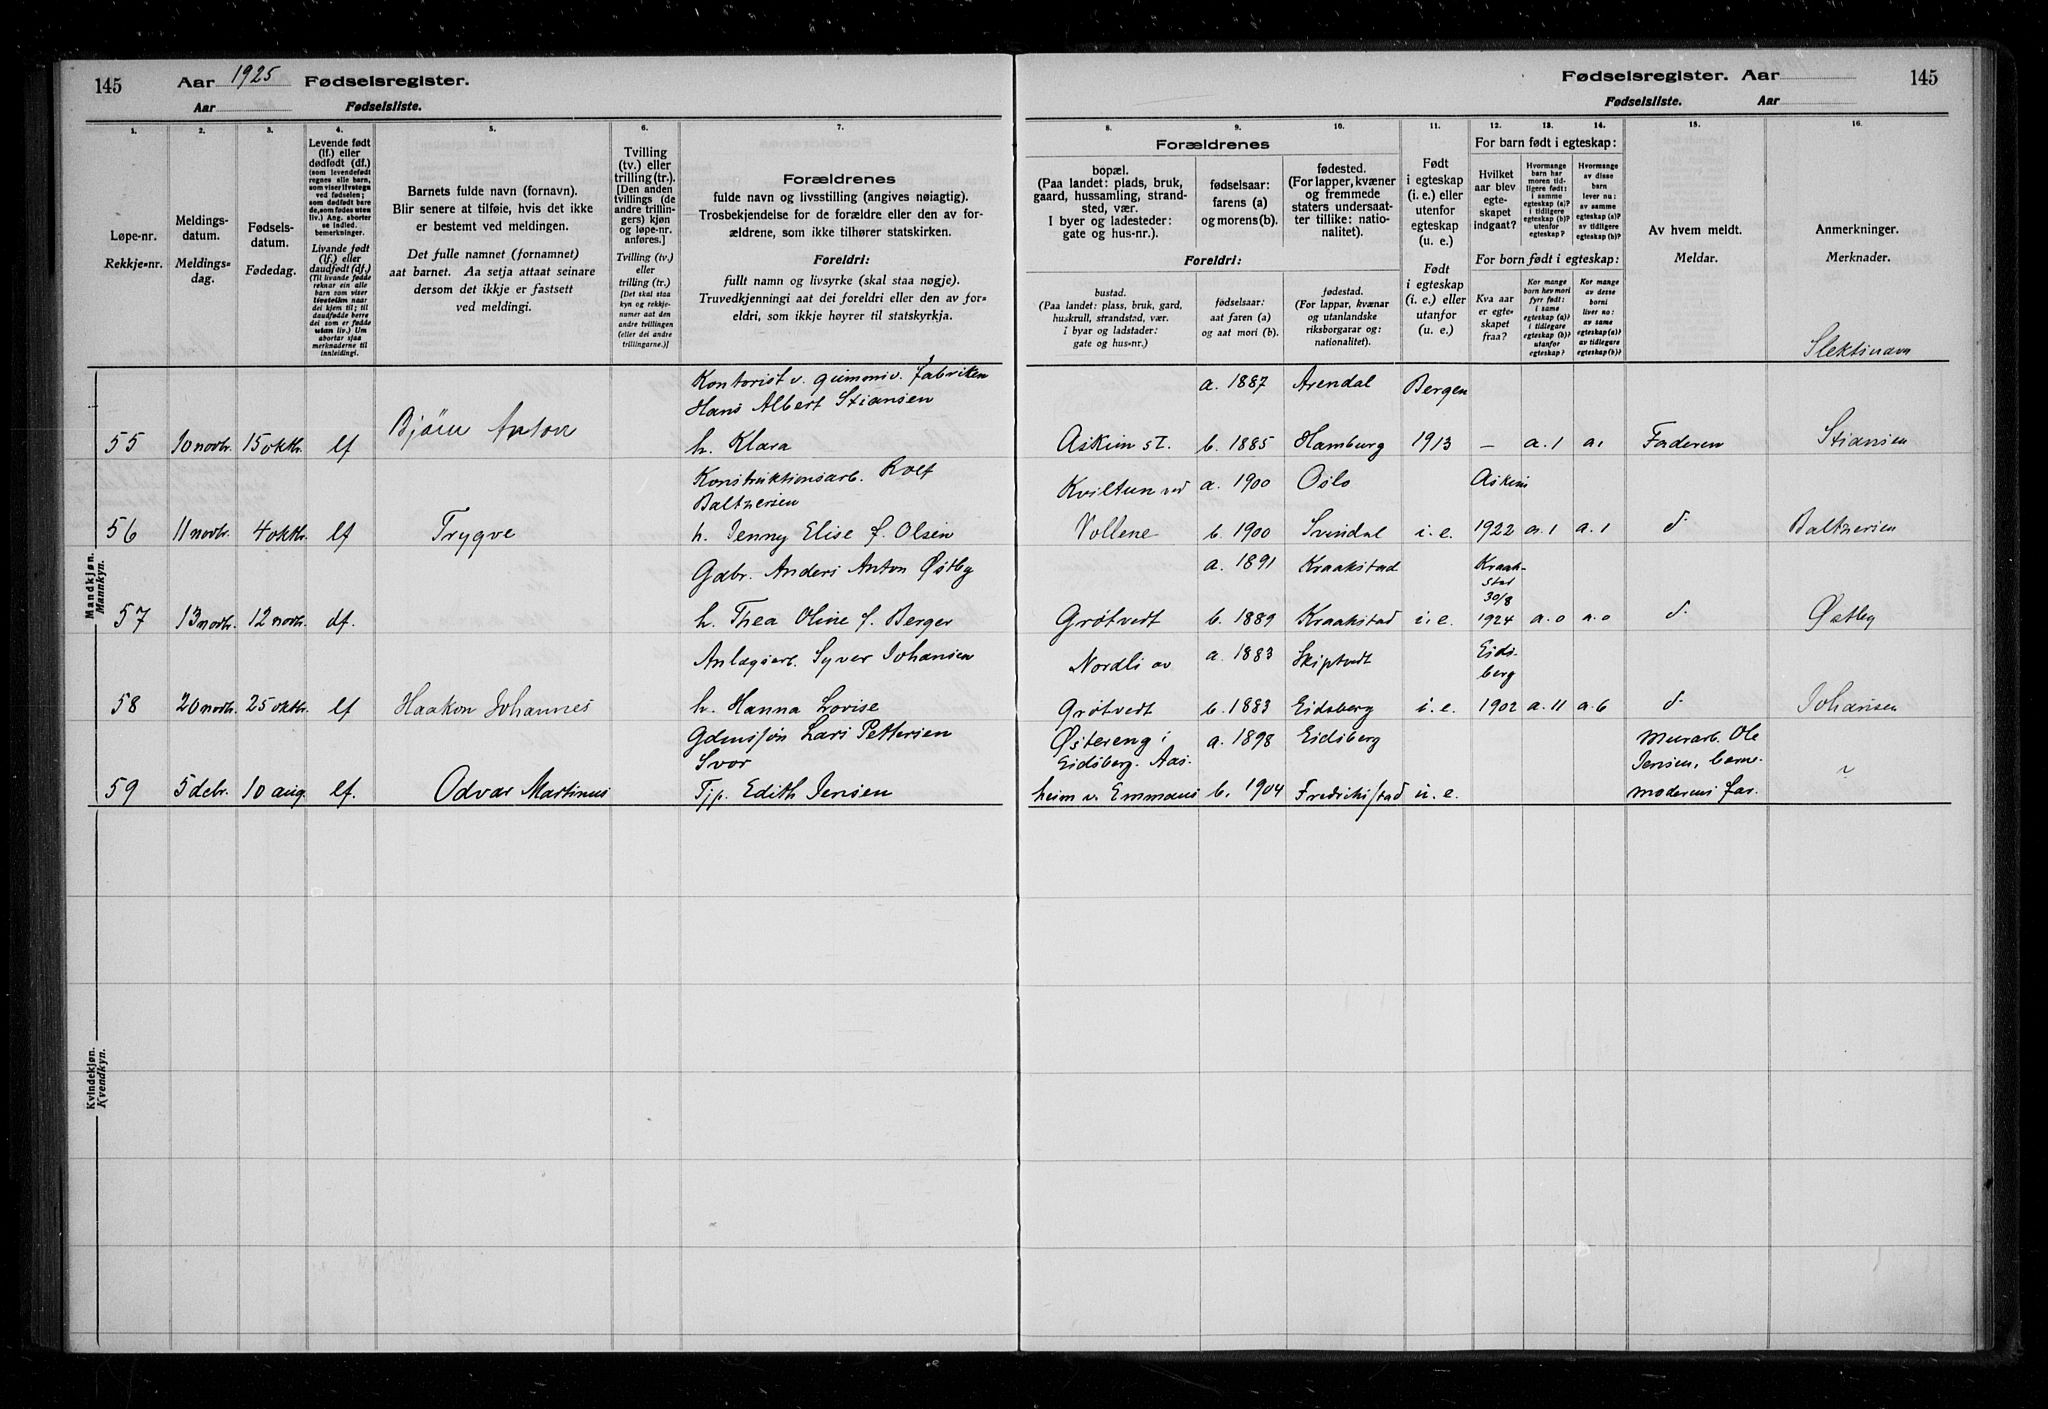 145 Aar 1925 Fødselsregister.
Aar Fødselsliste.
Fødselsregister. Aar 145
Fødselsliste. Aar
1. 2. 3. 4. 5. 6. 7. 8. 9. 10. 11. 12. 13. 14. 15. 16.
Løpe-nr.
Rekkje-nr.
Meldings-
datum.
Meldings-
dag.
Fødsels-
datum.
Fødedag.
Levende født
(lf.) eller
dødfødt (df.)
(som levendefødt
regnes alle barn,
som viser livstegn
ved fødselen;
som dødfødt bare
de, som fødes uten
liv.) Ang. aborter
se indled.
bemerkninger.
Livande født
(lf.) eller
daudfødt (df.)
(Til livande fødde
reknar ein alle
barn som viser
livsteikn naar
dei kjem til; til
daudfødde berre
dei som er fødde
utan liv.) Um
abortar sjaa
merknaderne til
innleidingi.
Barnets fulde navn (fornavn).
Blir senere at tilføie, hvis det ikke
er bestemt ved meldingen.
Det fulle namnet (fornamnet)
aat barnet. Aa setja attaat seinare
dersom det ikkje er fastsett
ved meldingi.
Tvilling
(tv.) eller
trilling (tr.).
[Den anden
tvillings (de
andre trillin-
gers) kjøn
og løpe-nr.
anføres.]
Tvilling (tv.)
eller
trilling (tr.)
[Det skal staa
kyn og rekkje-
numer aat den
andre tvillingen
(eller dei andre
trillingarne.)]
Forældrenes
fulde navn og livsstilling (angives nøiagtig).
Trosbekjendelse for de forældre eller den av for-
ældrene, som ikke tilhører statskirken.
Foreldri:
fullt namn og livsyrke (skal staa nøgje).
Truvedkjenningi aat dei foreldri eller den av for-
eldri, som ikkje høyrer til statskyrkja.
Forældrenes
bopæl.
(Paa landet: plads, bruk,
gaard, hussamling, strand-
sted, vær.
I byer og ladesteder:
gate og hus-nr.).
fødselsaar:
farens (a)
og morens (b).
fødested.
(For lapper, kvæner
og fremmede
staters undersaat-
ter tillike: natio-
nalitet).
Foreldri:
bustad.
(Paa landet: plass, bruk, gard,
huskrull, strandstad, vær.
i byar og ladstader:
gate og hus-nr.)
fødselsaar:
aat faren (a)
og aat mori (b).
fødestad.
(For lappar, kvænar
og utanlandske
riksborgarar og:
nationalitet).
Født
i egteskap
(i. e.) eller
utenfor
egteskap
(u. e.)
Født
i egteskap
(i. e.) eller
utanfor
(u. e.)
For barn født i egteskap:
Hvilket
aar blev
egte-
skapet
indgaat?
Hvormange
barn har
moren tid-
ligere født:
i samme
egteskap (a)?
i tidligere
egteskap (b)?
utenfor
egteskap?
Hvormange
av disse
barn
lever nu:
av samme
egteskap (a)?
av tidligere
egteskap (b)?
For born født i egteskap:
Kva aar
er egte-
skapet
fraa?
Kor mange
born hev mori
fyrr født:
i same
egteskap (a)?
i tidlegare
egteskap (b)?
utanfor
egteskap?
Kor mange
av desse
borni
liver no:
av same
egteskap (a)?
av tidlegare
egteskap (b)?
Av hvem meldt.
Meldar.
Anmerkninger.
Merknader.
Slektsnavn
Mandkjøn.
Mannkyn.
Kontorist v. gummiv. fabriken a. 1887 Arendal Bergen
Hans Albert Stiansen
55 10 novbr. 15 oktbr. lf Bjørn Anton h. Klara Askim st. b. 1885 Hamburg 1913 – a. 1 a. 1 Faderen Stiansen
Konstruktionsarb. Rolf Kviltun ved a. 1900 Oslo Askim
Baltzersen
56 11 novbr. 4 oktbr. lf Trygve h. Jenny Elise f. Olsen Vollene b. 1900 Svindal i. e. 1922 a. 1 a. 1 d. Baltzersen
Gdbr. Anders Anton Østby a. 1891 Kraakstad Kraak-
stad
30/8
57 13 novbr. 12 novbr. df. h. Thea Oline f. Berger Grøtvedt b. 1889 Kraakstad i. e. 1924 a. 0 a. 0 d. Østby
Anlægsarb. Syver Johansen Nordli av a. 1883 Skiptvedt Eids-
berg
58 20 novbr. 25 oktbr. lf Haakon Johannes h. Hanna Lovise Grøtvedt b. 1883 Eidsberg i. e. 1902 a. 11 a. 6 d. Johansen
Gdmssøn Lars Pettersen Østereng i a. 1898 Eidsberg Murarb. Ole
Svor Eidsberg. Aas- Jensen, barne-
59 5 debr. 10 aug. lf. Odvar Martinus Tjp. Edith Jensen heim v. Emmaus b. 1904 Fredrikstad u. e. moderens far. ~
Kvindekjøn.
Kvendkyn.